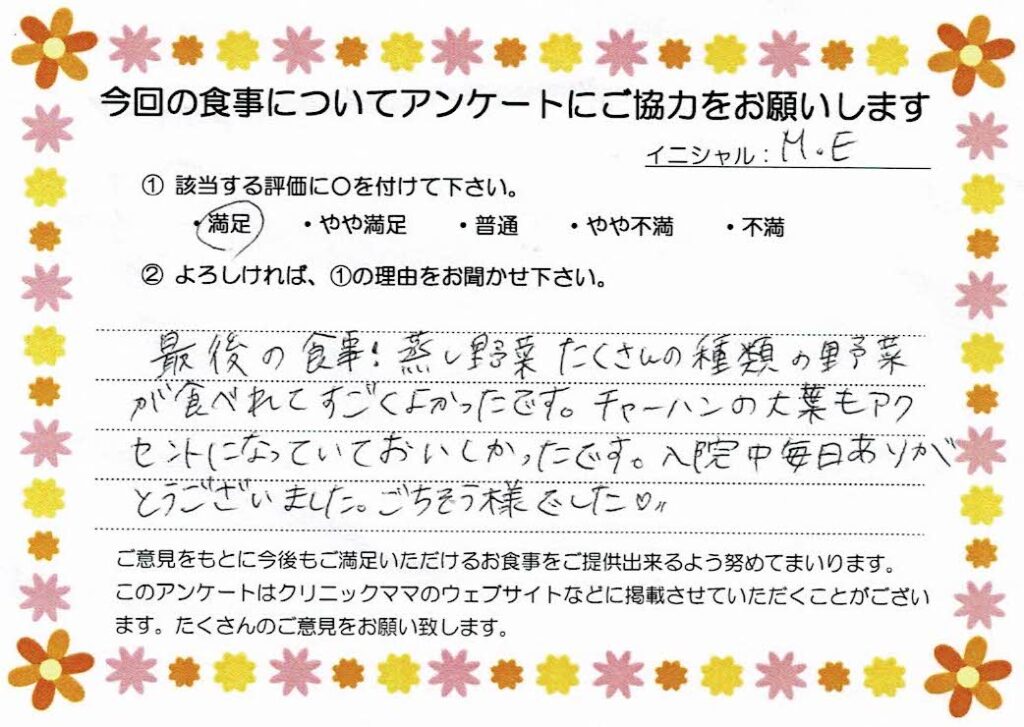 今回の食事についてアンケートにご協力をお願いします
イニシャル：M.E
① 該当する評価に〇を付けて下さい。
・満足 ・やや満足 ・普通 ・やや不満 ・不満
② よろしければ、①の理由をお聞かせ下さい。
最後の食事！蒸し野菜たくさんの種類の野菜
が食べれてすごくよかったです。チャーハンの大葉もアク
セントになっていておいしかったです。入院中毎日ありが
とうございました。ごちそう様でした♡〃
ご意見をもとに今後もご満足いただけるお食事をご提供出来るよう努めてまいります。
このアンケートはクリニックママのウェブサイトなどに掲載させていただくことがござい
ます。たくさんのご意見をお願い致します。